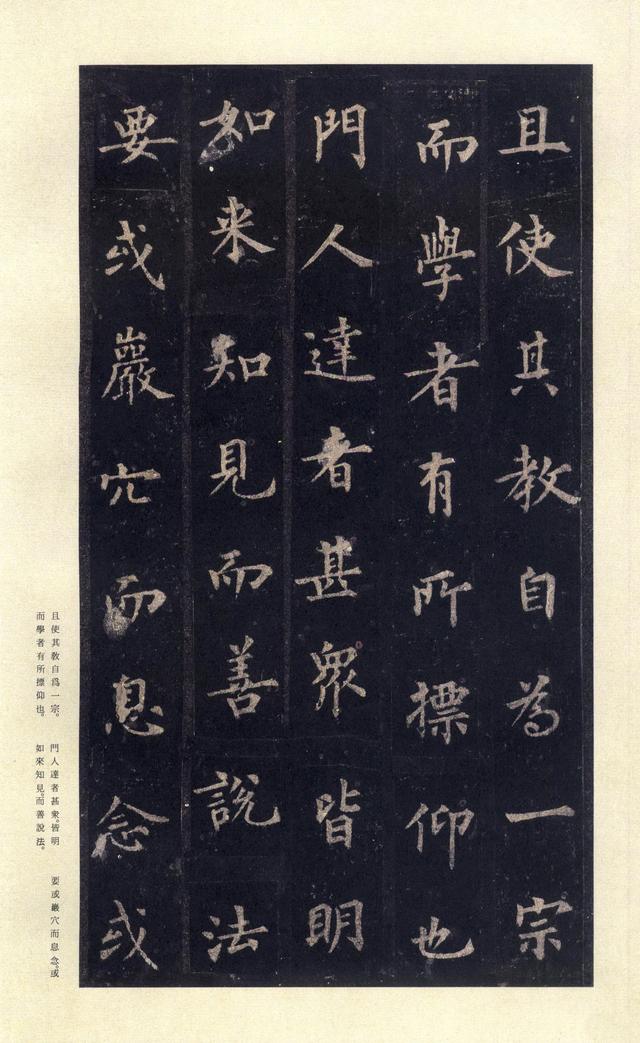 且使其教自為一宗
而學者有所標仰也
門人達者甚眾皆明
如来知見而善說法
要或巖穴而息念或
且使其敎自爲一宗。
而學者有所標仰也。
門人達者甚衆。皆明
如來知見。而善說法。
要或巖穴而息念。或